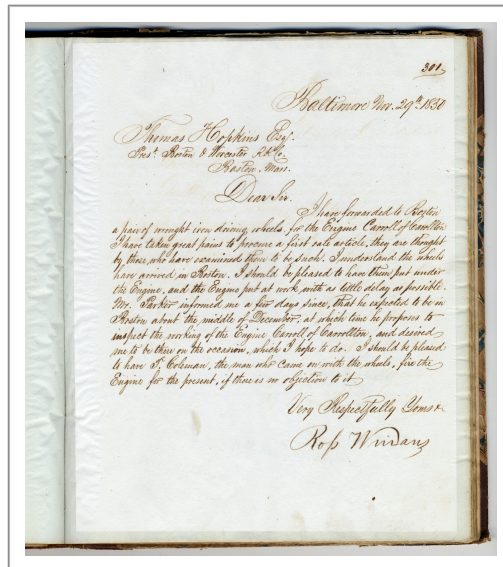 301
Baltimore Nov. 29th 1850
Thomas Hopkins Esq.
Prest. Boston & Worcester R.R. Co.
Boston Mass.
Dear Sir.
I have forwarded to Boston
a pair of wrought iron driving wheels, for the Engine Carroll of Carrollton
I have taken great pains to procure a first rate article, they are thought
by those who have examined them to be such. I understand the wheels
have arrived in Boston. I should be pleased to have them put under
the Engine, and the Engine put at work with as little delay as possible.
Mr. Parker informed me a few days since, that he expected to be in
Boston about the middle of December, at which time he proposes to
inspect the working of the Engine Carroll of Carrollton, and desired
me to be there on the occasion, which I hope to do. I should be pleased
to have Coleman, the man who came on with the wheels, fire the
Engine for the present, if there is no objection to it
Very Respectfully Yours &
Ross Winans